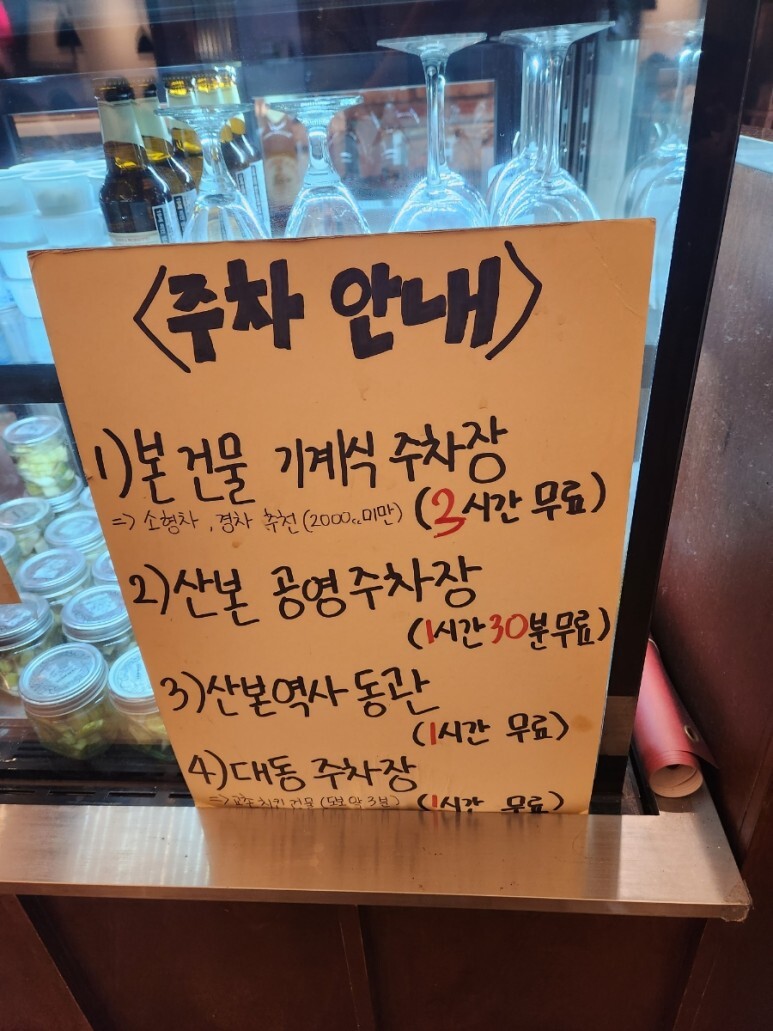 <주차 안내>
1) 본 건물 기계식 주차장
=> 소형차, 경차 추천 (2000cc미만) (2시간 무료)
2) 산본 공영주차장
(1시간 30분 무료)
3) 산본역사 동관
(1시간 무료)
4) 대동 주차장
=> 교촌치킨 건물 (도보 약 3분) (1시간 무료)